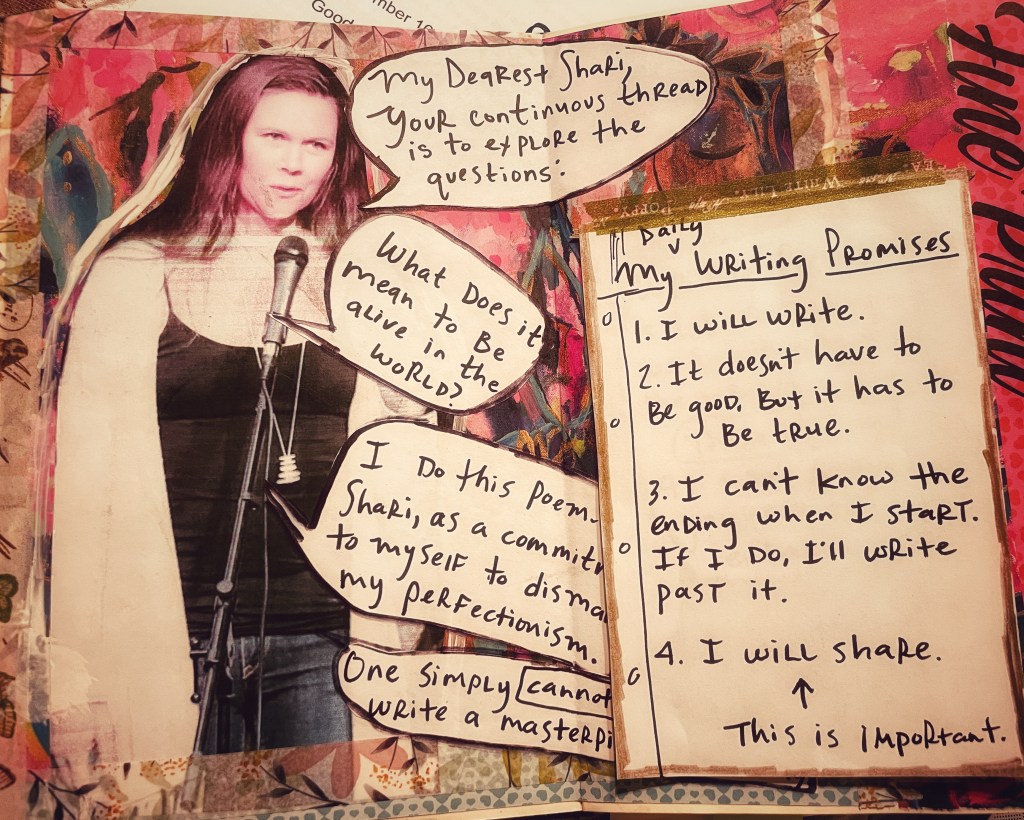 mber 1
Good
My Dearest Shari,
Your continuous thread
is to explore the
questions:
What Does it
mean to Be
alive in the
WORLD?
I Do this poem.
Shari, as a commit
to myself to disma
my perfectionism.
One simply cannot
write a masterpi
WHITE
POPPY
Daily
My Writing Promises
1. I will write.
2. It doesn't have to
Be good. But it has to
Be true.
3. I can't know the
ending when I start.
If I Do, I'll write
past it.
4. I will share.
↑
This is important.